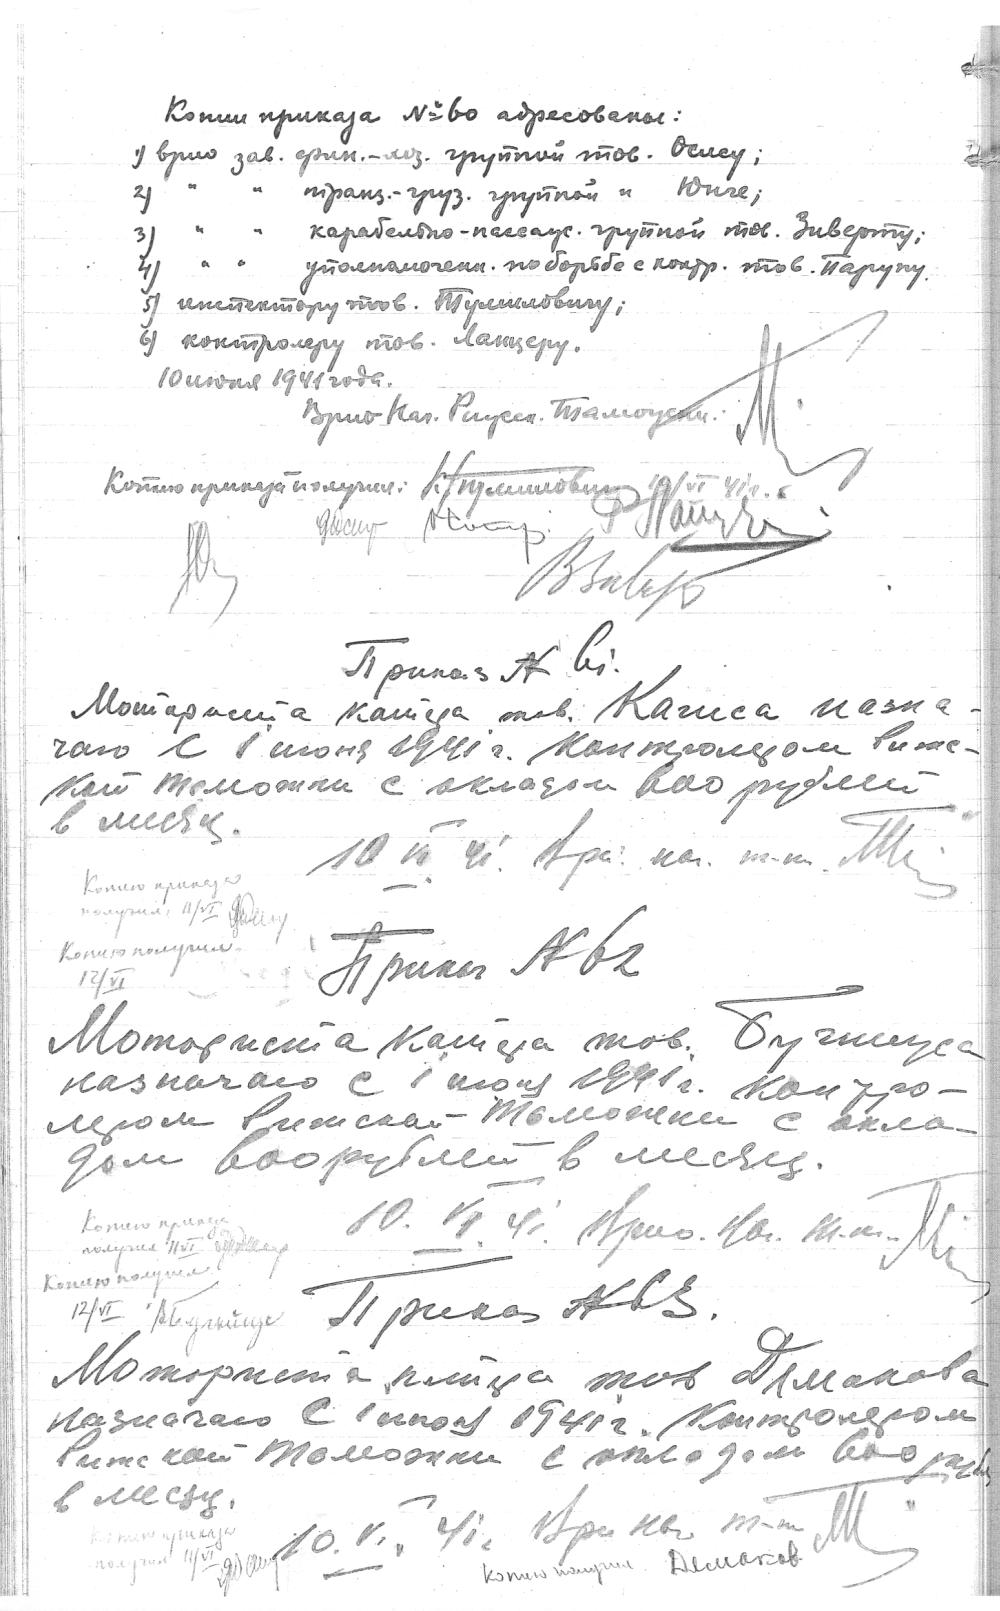 Копии приказа № 60 адресованы:
1) врио зав. фин.-хоз. группой тов. Осису;
2) " " транз.-груз. группой " Юнче;
3) " " карабельно-пассаж. группой тов. Зиверту;
4) " " уполнамоченн. по борьбе с контр. тов. Парупу.
5) инспектору тов. Тумиловичу;
6) контролеру тов. Ланцеру.
10 июня 1941 года.
Врио Нач. Рижск. Таможни:
Копию приказа получил: 10/VI 41 г.
В Зиверт
Приказ № 61.
Моториста катера тов. Кагиса назна-
чаю с 1 июня 1941 г. контролером Рижс-
кой таможни с окладом 600 рублей
в месяц.
10 VI 41. Врио нач. т-ни
Копию приказа
получил 11/VI
Копию получил
12/VI
Приказ № 62
Моториста катера тов.
назначаю с 1 июня 1941 г. контро-
лером Рижской таможни с окла-
дом 600 рублей в месяц.
10. VI 41. Врио. Нач. т-ни
Копию приказа
получил 11/VI
Копию получил
12/VI
Приказ № 63.
Моториста катера тов Демакова
назначаю с 1 июня 1941 г. контролером
Рижской таможни с окладом 600 рубл
в месяц.
Копию приказа
получил 11/VI
10. VI. 41. Врио Нач т-ни
Копию получил Демаков